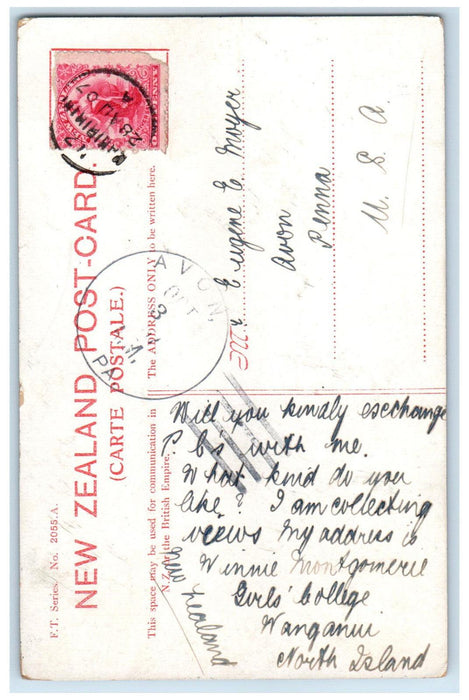 NEW ZEALAND POST-CARD.
(CARTE POSTALE.)
F.T. Series. No. 2055.A.
This space may be used for communication in
N.Z. or the British Empire.
The ADDRESS ONLY to be written here.
28 AU 07
A
AVON,
OCT
3
PA.
Mr Eugene E Moyer
Avon
Penna
U. S. A
Will you kindly exchange
P. C's with me.
What kind do you
like? I am collecting
views My address is
Winnie Montgomerie
Girls' College
Wanganui
North Island
New Zealand